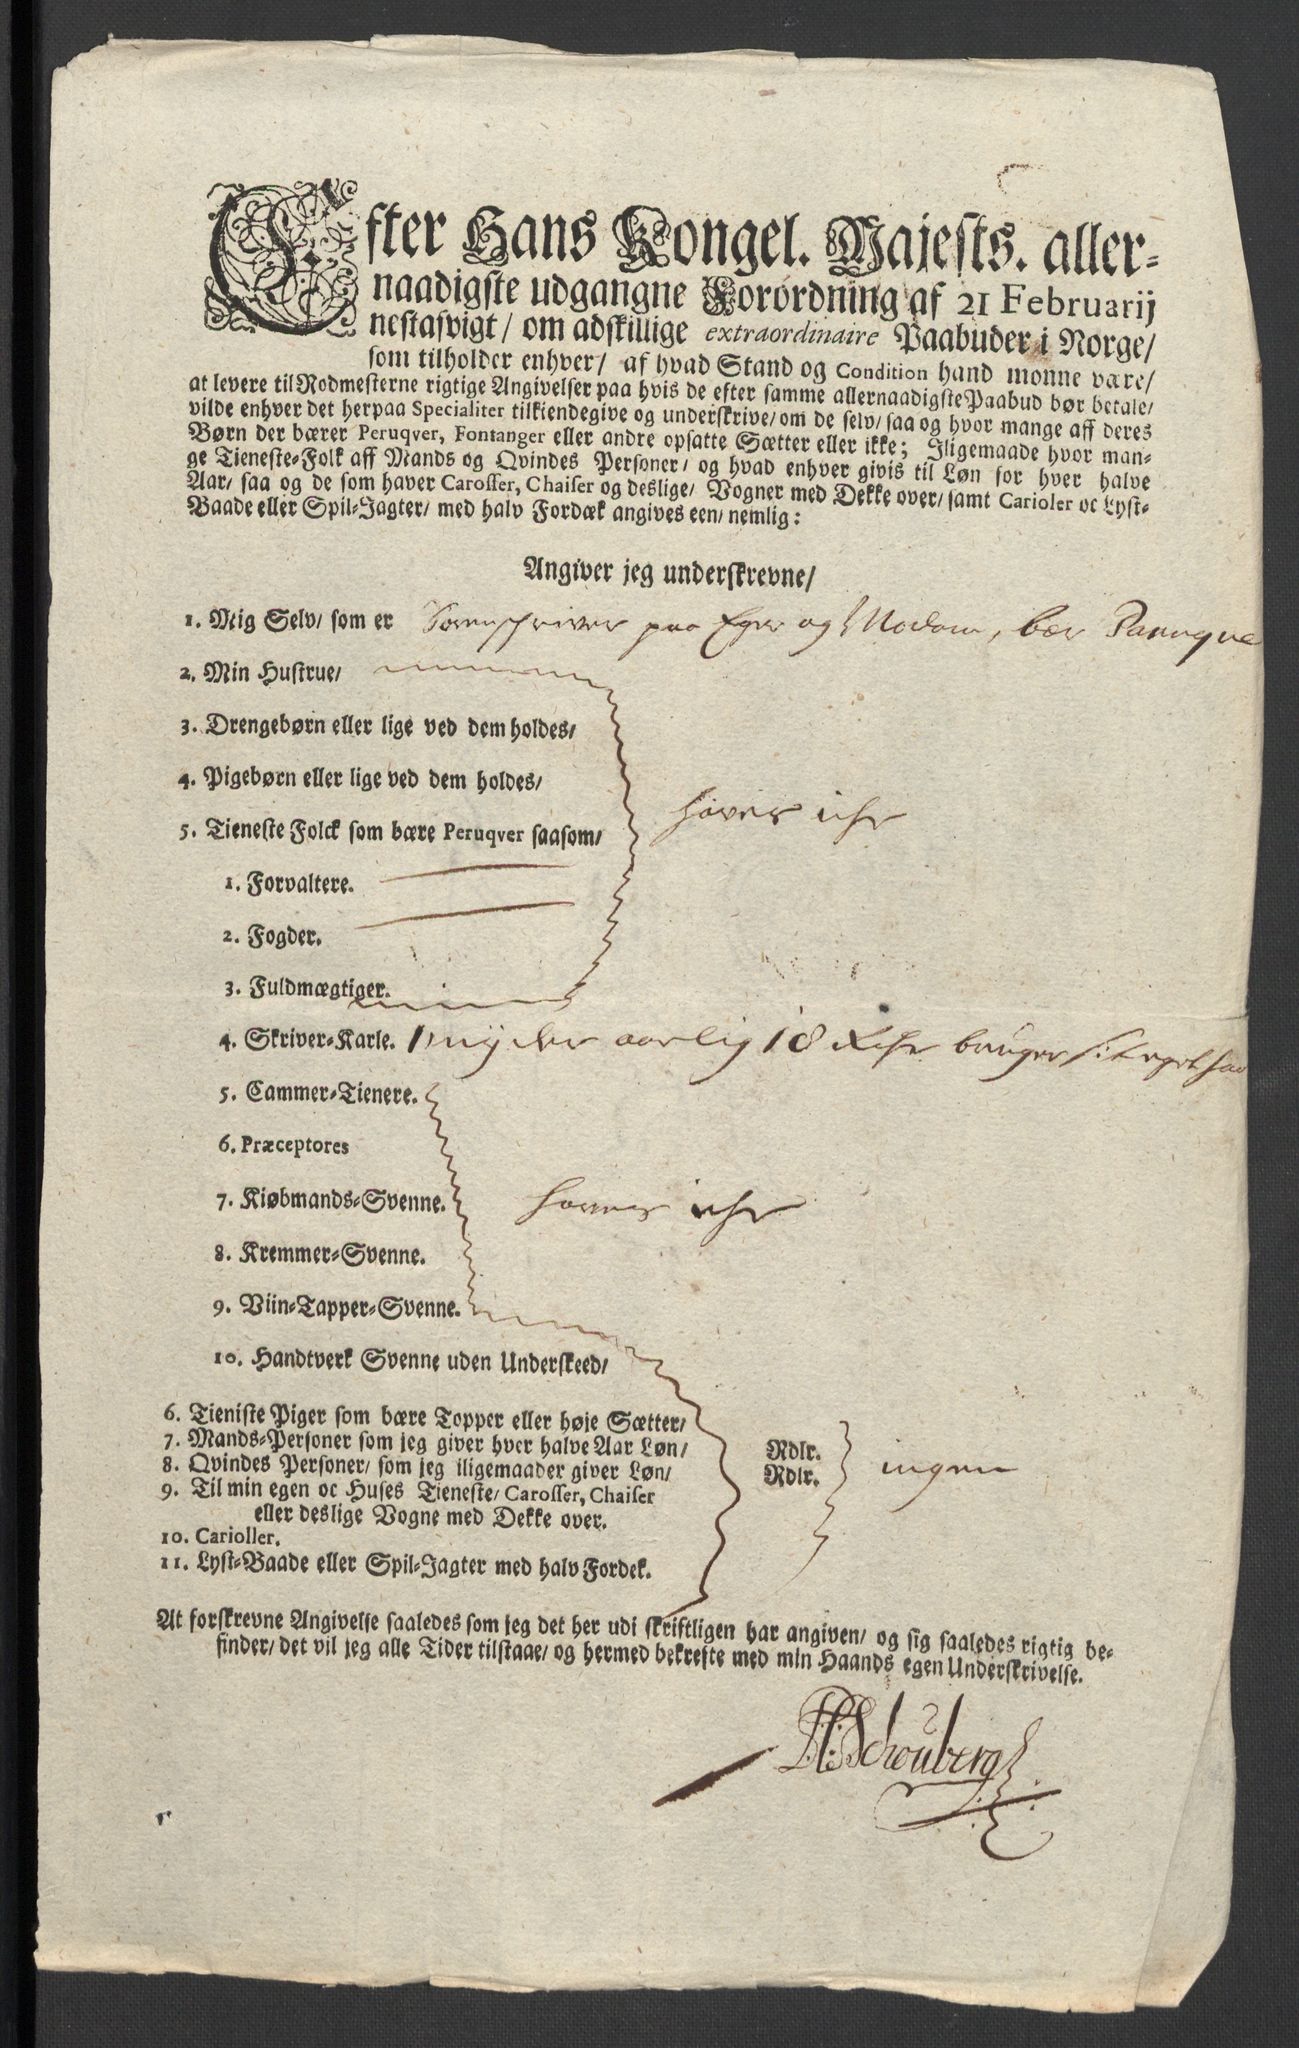 Efter Hans Kongel. Majests. aller-
naadigste udgangne Forordning af 21 Februarij
nestafvigt/ om adskillige extraordinaire Paabuder i Norge/
som tilholder enhver/ af hvad Stand og Condition hand monne være/
at levere til Rodmesterne rigtige Angivelser paa hvis de efter samme allernaadigste Paabud bør betale/
vilde enhver det herpaa Specialiter tilkiendegive og underskrive/ om de selv/ saa og hvor mange aff deres
Børn der bærer Peruqver, Fontanger eller andre opsatte Sætter eller ikke; Iligemaade hvor man-
ge Tieneste-Folk aff Mands og Qvindes Personer/ og hvad enhver givis til Løn for hver halve
Aar/ saa og de som haver Carosser, Chaiser og deslige/ Vogner med Dekke over/ samt Carioler oc Lyst-
Baade eller Spil-Jagter/ med halv Fordæk angives een/ nemlig:
Angiver jeg underskrevne/
1. Mig Selv/ som er Sorenschriver paa Eger og Modum, bær Paruque
2. Min Hustrue/
3. Drengebørn eller lige ved dem holdes/
4. Pigebørn eller lige ved dem holdes/
hafver iche
5. Tieneste Folck som bære Peruqver saasom/
1. Forvaltere.
2. Fogder.
3. Fuldmægtiger.
4. Skriver-Karle. 1 nyder aarlig 18 bruger sit eget haar
5. Cammer-Tienere.
6. Præceptores
7. Kiøbmands-Svenne. hafver iche
8. Kremmer-Svenne.
9. Viin-Tapper-Svenne.
10. Handtverk Svenne uden Underskeed/
6. Tieniste Piger som bære Topper eller høje Sætter/
7. Mands-Personer som jeg giver hver halve Aar Løn/ Rdlr.
8. Qvindes Personer/ som jeg iligemaader giver Løn/ Rdlr. ingen
9. Til min egen oc Huses Tieneste/ Carosser, Chaiser
eller deslige Vogne med Dekke over.
10. Carioller.
11. Lyst-Baade eller Spil-Jagter med halv Fordek.
At forskrevne Angivelse saaledes som jeg det her udi skriftligen har angiven/ og sig saaledes rigtig be-
finder/ det vil jeg alle Tider tilstaae/ og hermed bekrefte med min Haands egen Underskrivelse.
Schouberg